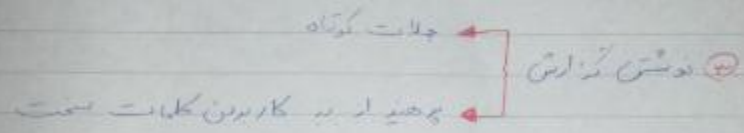 ۳ نوشتن گزارش
جملات کوتاه
پرهیز از به کار بردن کلمات سخت